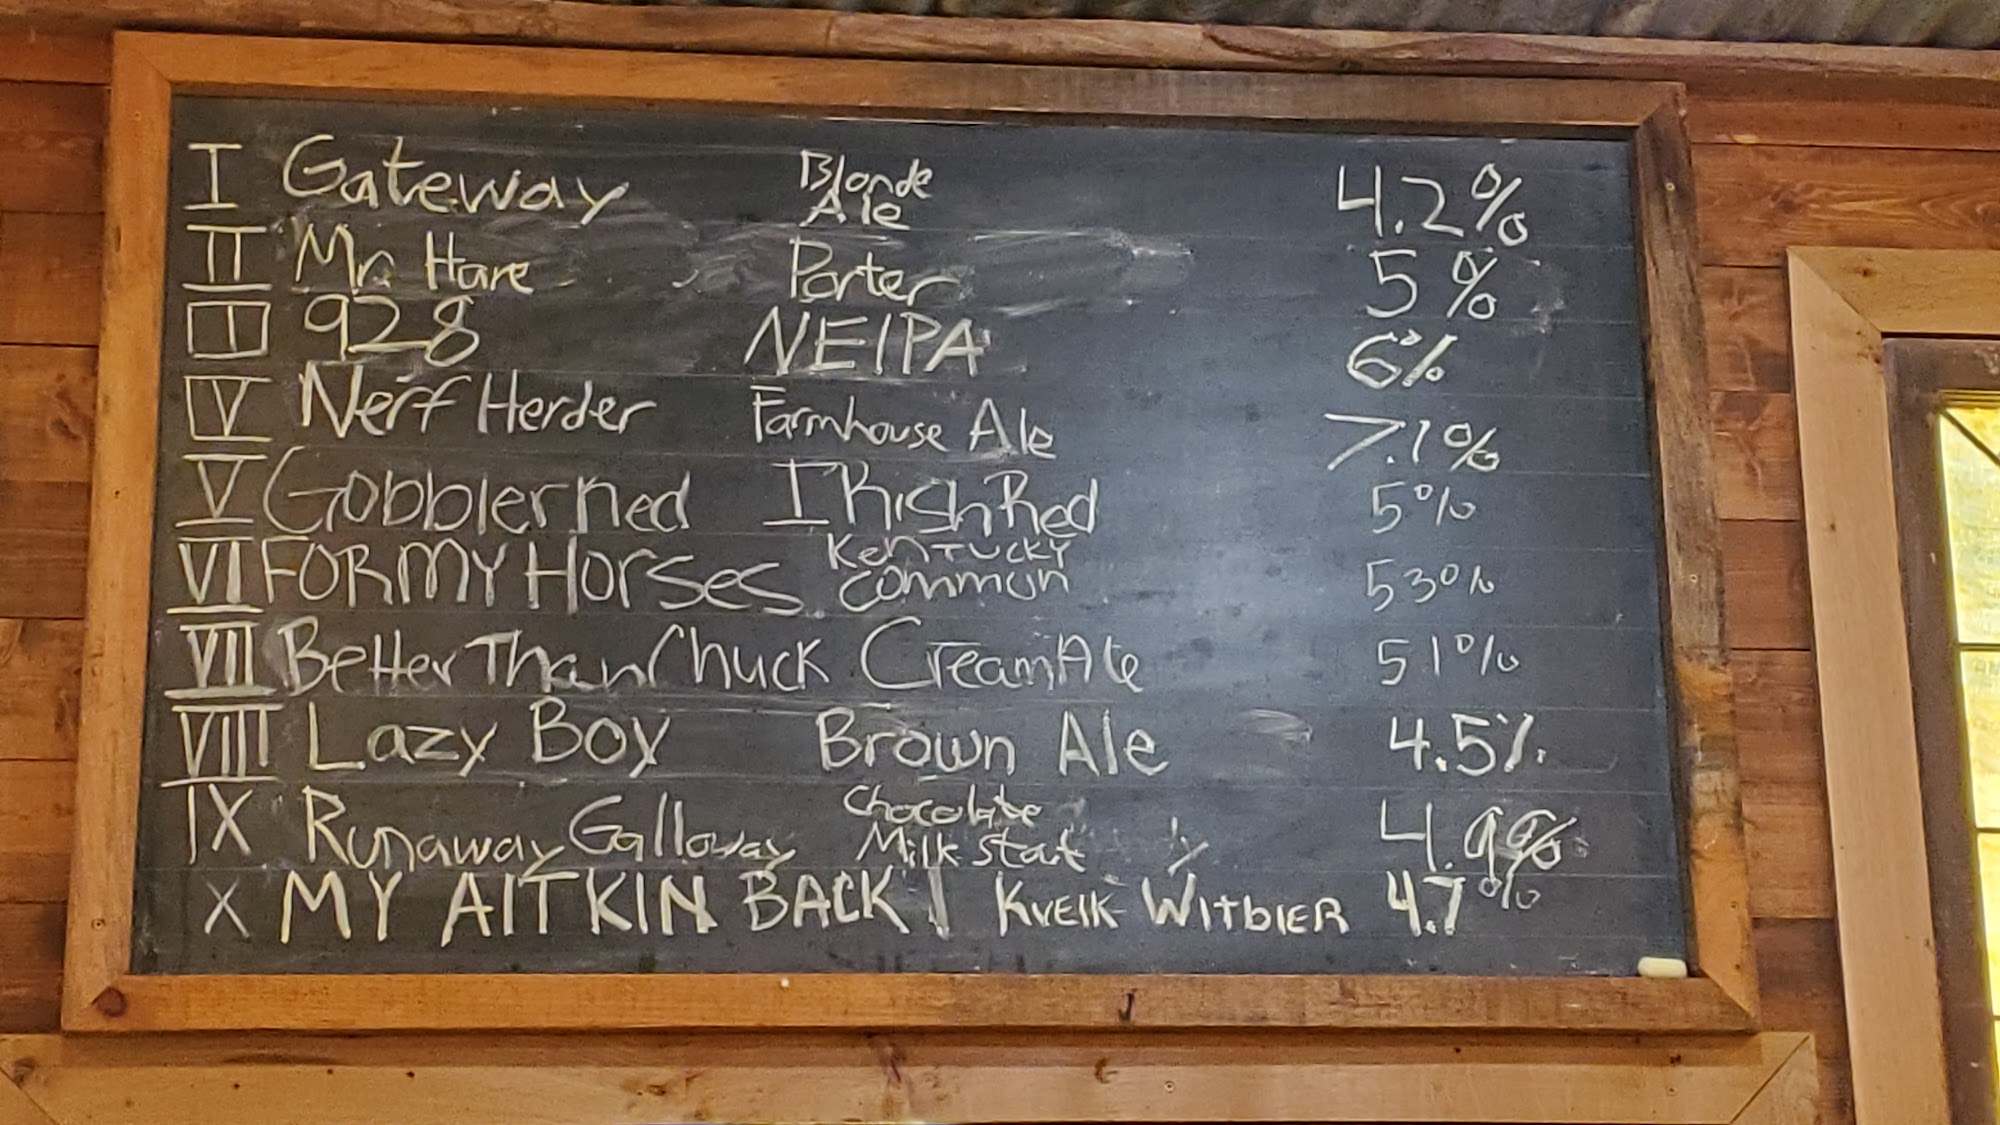 I Gateway Blonde Ale 4.2%
II Mr. Hare Porter 5%
III 928 NEIPA 6%
IV Nerf Herder Farmhouse Ale 7.1%
V Gobblerned IRish Red 5%
VI FOR MY HORSES KENTUCKY common 53%
VII Better Than Chuck Cream Ale 51%
VIII Lazy Boy Brown Ale 4.5%
IX Runaway Galloway Chocolate Milk Stout 4.9%
X MY AITKIN BACK! KVEIK WITBIER 4.7%